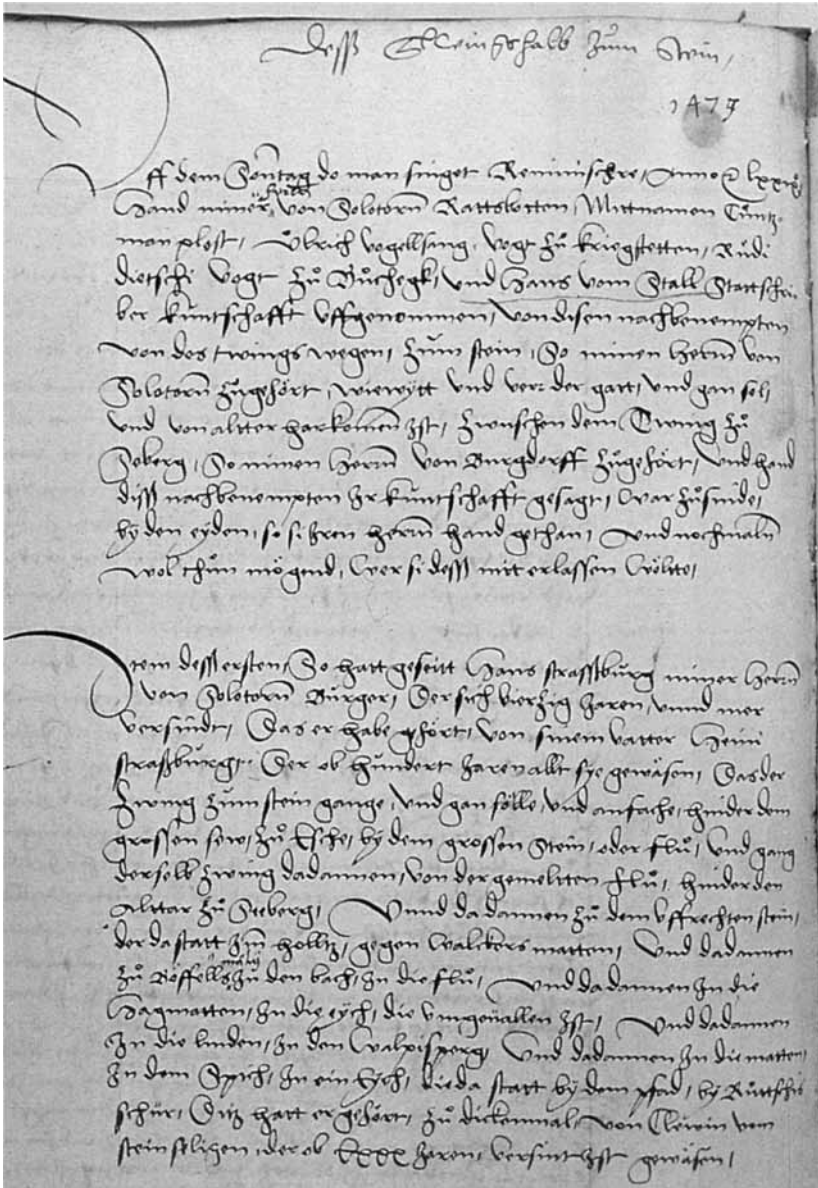 Desß Steinßhalb zum Stein,
1479
Uff dem Sontag do man singet Reminischre, Anno etc lxxix
Hand miner herren von Solotorn Rattsbotten, Mittnamen Cuntz
man plost, Ulrich vogellsang, vogt zů kriegstetten, Růdi
dietschi Vogt zů Bůchegk, und Hans vom Stall Stattschri
ber kuntschafft uffgenommen, von disen nachbenempten
von des twings wegen, zum stein, So minen herrn von
Solotorn zůgehört, wie wytt und verr der gatt, und gan sol,
und von altter harkomen ist, zwuschen dem Twing zů
Seberg, So minen herrn von Burgdorff zůgehört, Und hand
diß nachbenempten Ir kuntschafft gesagt, war zůsinde,
by den eyden, so si Iren herrn hand gethan, Und nochmaln
wol thůn mögend, wer si desß nitt erlassen wöltte,
Item desß ersten, So hatt geseitt Hans straßburg miner herrn
von Solotorn Burger, Der sich vierzig Jaren, unnd mer
versindt, Das er habe gehört, von sinem vatter Heini
straßburg, Der ob hundert Jaren allt sye gewäsen, Das der
Zwing zum stein gange, und gan sölle, und anfache, hinder dem
grossen sew, zů Esche, by dem grossen Stein, oder flů, Und gang
derselb zwing dadannen, von der gemeltten flů, hinder den
Alttar zů Seeberg, Unnd dadannen zů dem uffrechten stein,
der da statt Im holltz, gegen Walckers matten, Und dadannen
zů Böffells zů den bach, In die flů, Und dadannen In die
Hagmatten, In die eych, die umgevallen Ist, Und dadannen
In die linden, In den Walpisperg, Und dadannen In die matten,
In dem Spich, In ein Eych, die da statt by dem pfad, by Růttschis
schür, Ditz hatt er gehört, zů dickenmal, von Clewin vom
stein seligen, der ob lxxx Jaren, versint Ist gewäsen,